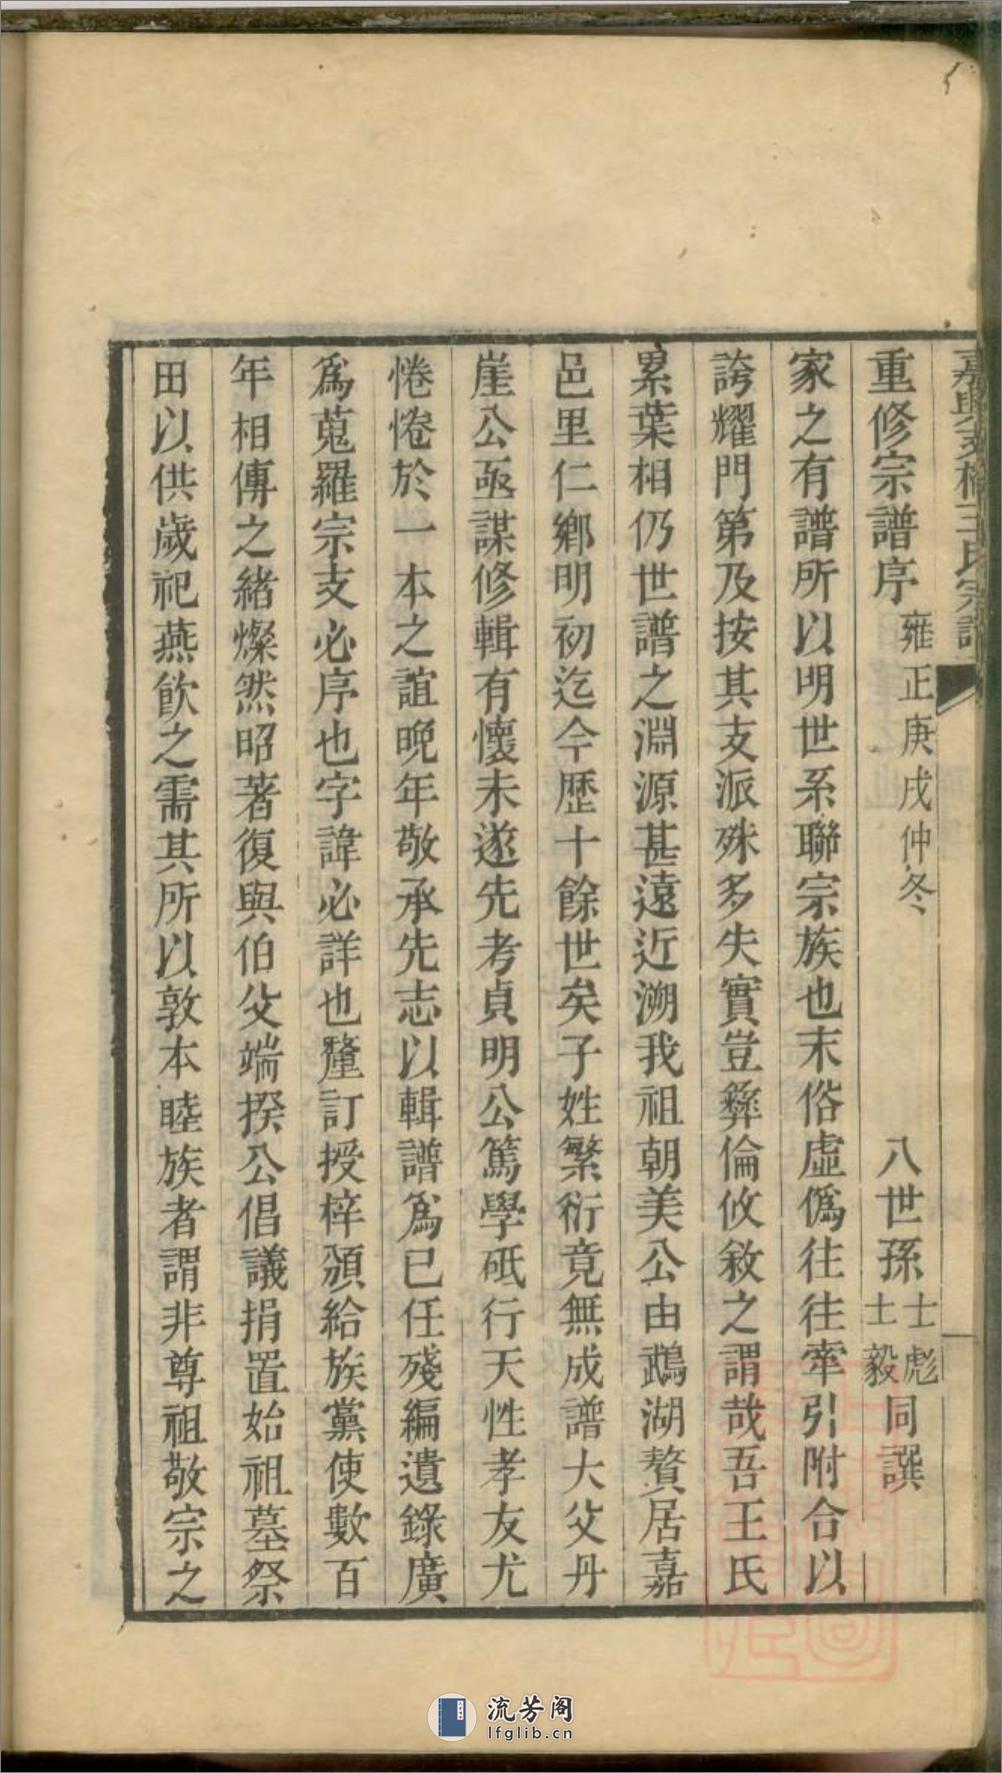 重修宗譜序 雍正庚戌仲冬 八世孫 士彪 士毅 同譔
家之有譜所以明世系聯宗族也末俗虛僞往往牽引附合以
誇耀門第及按其支派殊多失實豈彝倫攸敘之謂哉吾王氏
累葉相仍世譜之淵源甚遠近溯我祖朝美公由鵡湖贅居嘉
邑里仁鄉明初迄今歷十餘世矣子姓繁衍竟無成譜大父丹
崖公亟謀修輯有懷未遂先考貞明公篤學砥行天性孝友尤
惓惓於一本之誼晚年敬承先志以輯譜爲已任殘編遺錄廣
爲蒐羅宗支必序也字諱必詳也釐訂授梓頒給族黨使數百
年相傳之緒燦然昭著復與伯父端揆公倡議捐置始祖墓祭
田以供歲祀燕飮之需其所以敦本睦族者謂非尊祖敬宗之
流芳阁
lfglib.cn